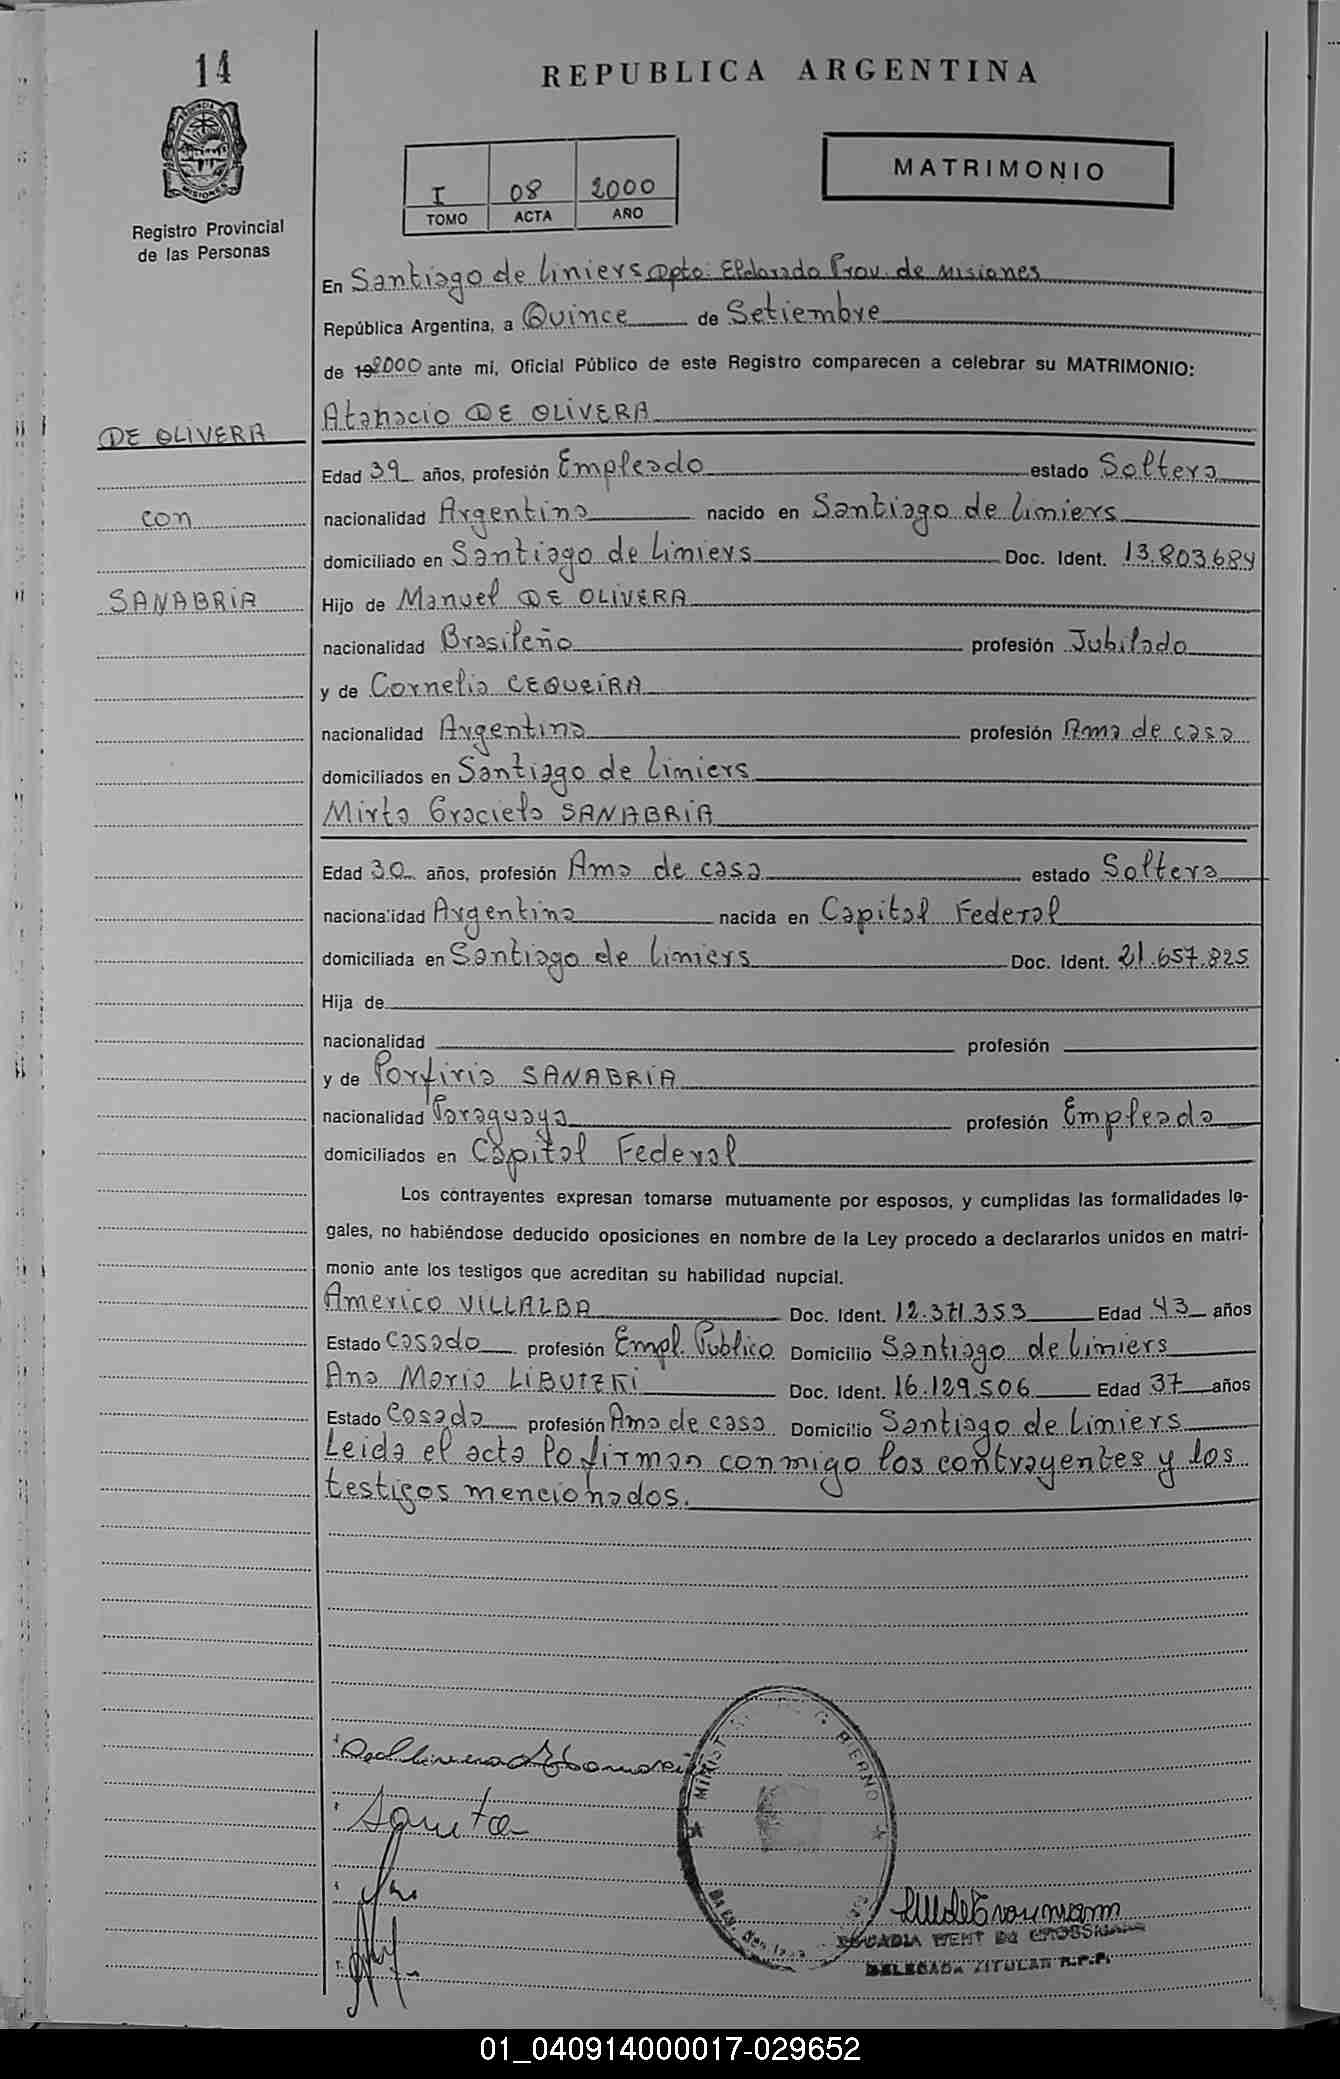 14
REPUBLICA ARGENTINA
MATRIMONIO
I 08 2000
TOMO ACTA AÑO
Registro Provincial
de las Personas
En Santiago de Liniers Dpto: Eldorado Prov. de Misiones
República Argentina, a Quince de Setiembre
de 2000 ante mi, Oficial Público de este Registro comparecen a celebrar su MATRIMONIO:
Atanacio DE OLIVERA
DE OLIVERA
Edad 39 años, profesión Empleado estado Soltero
con
nacionalidad Argentino nacido en Santiago de Liniers
domiciliado en Santiago de Liniers Doc. Ident. 13.803.684
SANABRIA
Hijo de Manuel DE OLIVERA
nacionalidad Brasileño profesión Jubilado
y de Cornelia CEQUEIRA
nacionalidad Argentina profesión Ama de casa
domiciliados en Santiago de Liniers
Mirta Graciela SANABRIA
Edad 30 años, profesión Ama de casa estado Soltera
nacionalidad Argentina nacida en Capital Federal
domiciliada en Santiago de Liniers Doc. Ident. 21.657.825
Hija de
nacionalidad profesión
y de Porfiria SANABRIA
nacionalidad Paraguaya profesión Empleada
domiciliados en Capital Federal
Los contrayentes expresan tomarse mutuamente por esposos, y cumplidas las formalidades le-
gales, no habiéndose deducido oposiciones en nombre de la Ley procedo a declararlos unidos en matri-
monio ante los testigos que acreditan su habilidad nupcial.
Americo VILLALBA Doc. Ident. 12.371.353 Edad 43 años
Estado Casado profesión Empl. Publico Domicilio Santiago de Liniers
Ana Maria LIBUTZKI Doc. Ident. 16.129.506 Edad 37 años
Estado Casada profesión Ama de casa Domicilio Santiago de Liniers
Leida el acta lo firman conmigo los contrayentes y los
testigos mencionados.
DELEGADA TITULAR R.P.P.
01_040914000017-029652